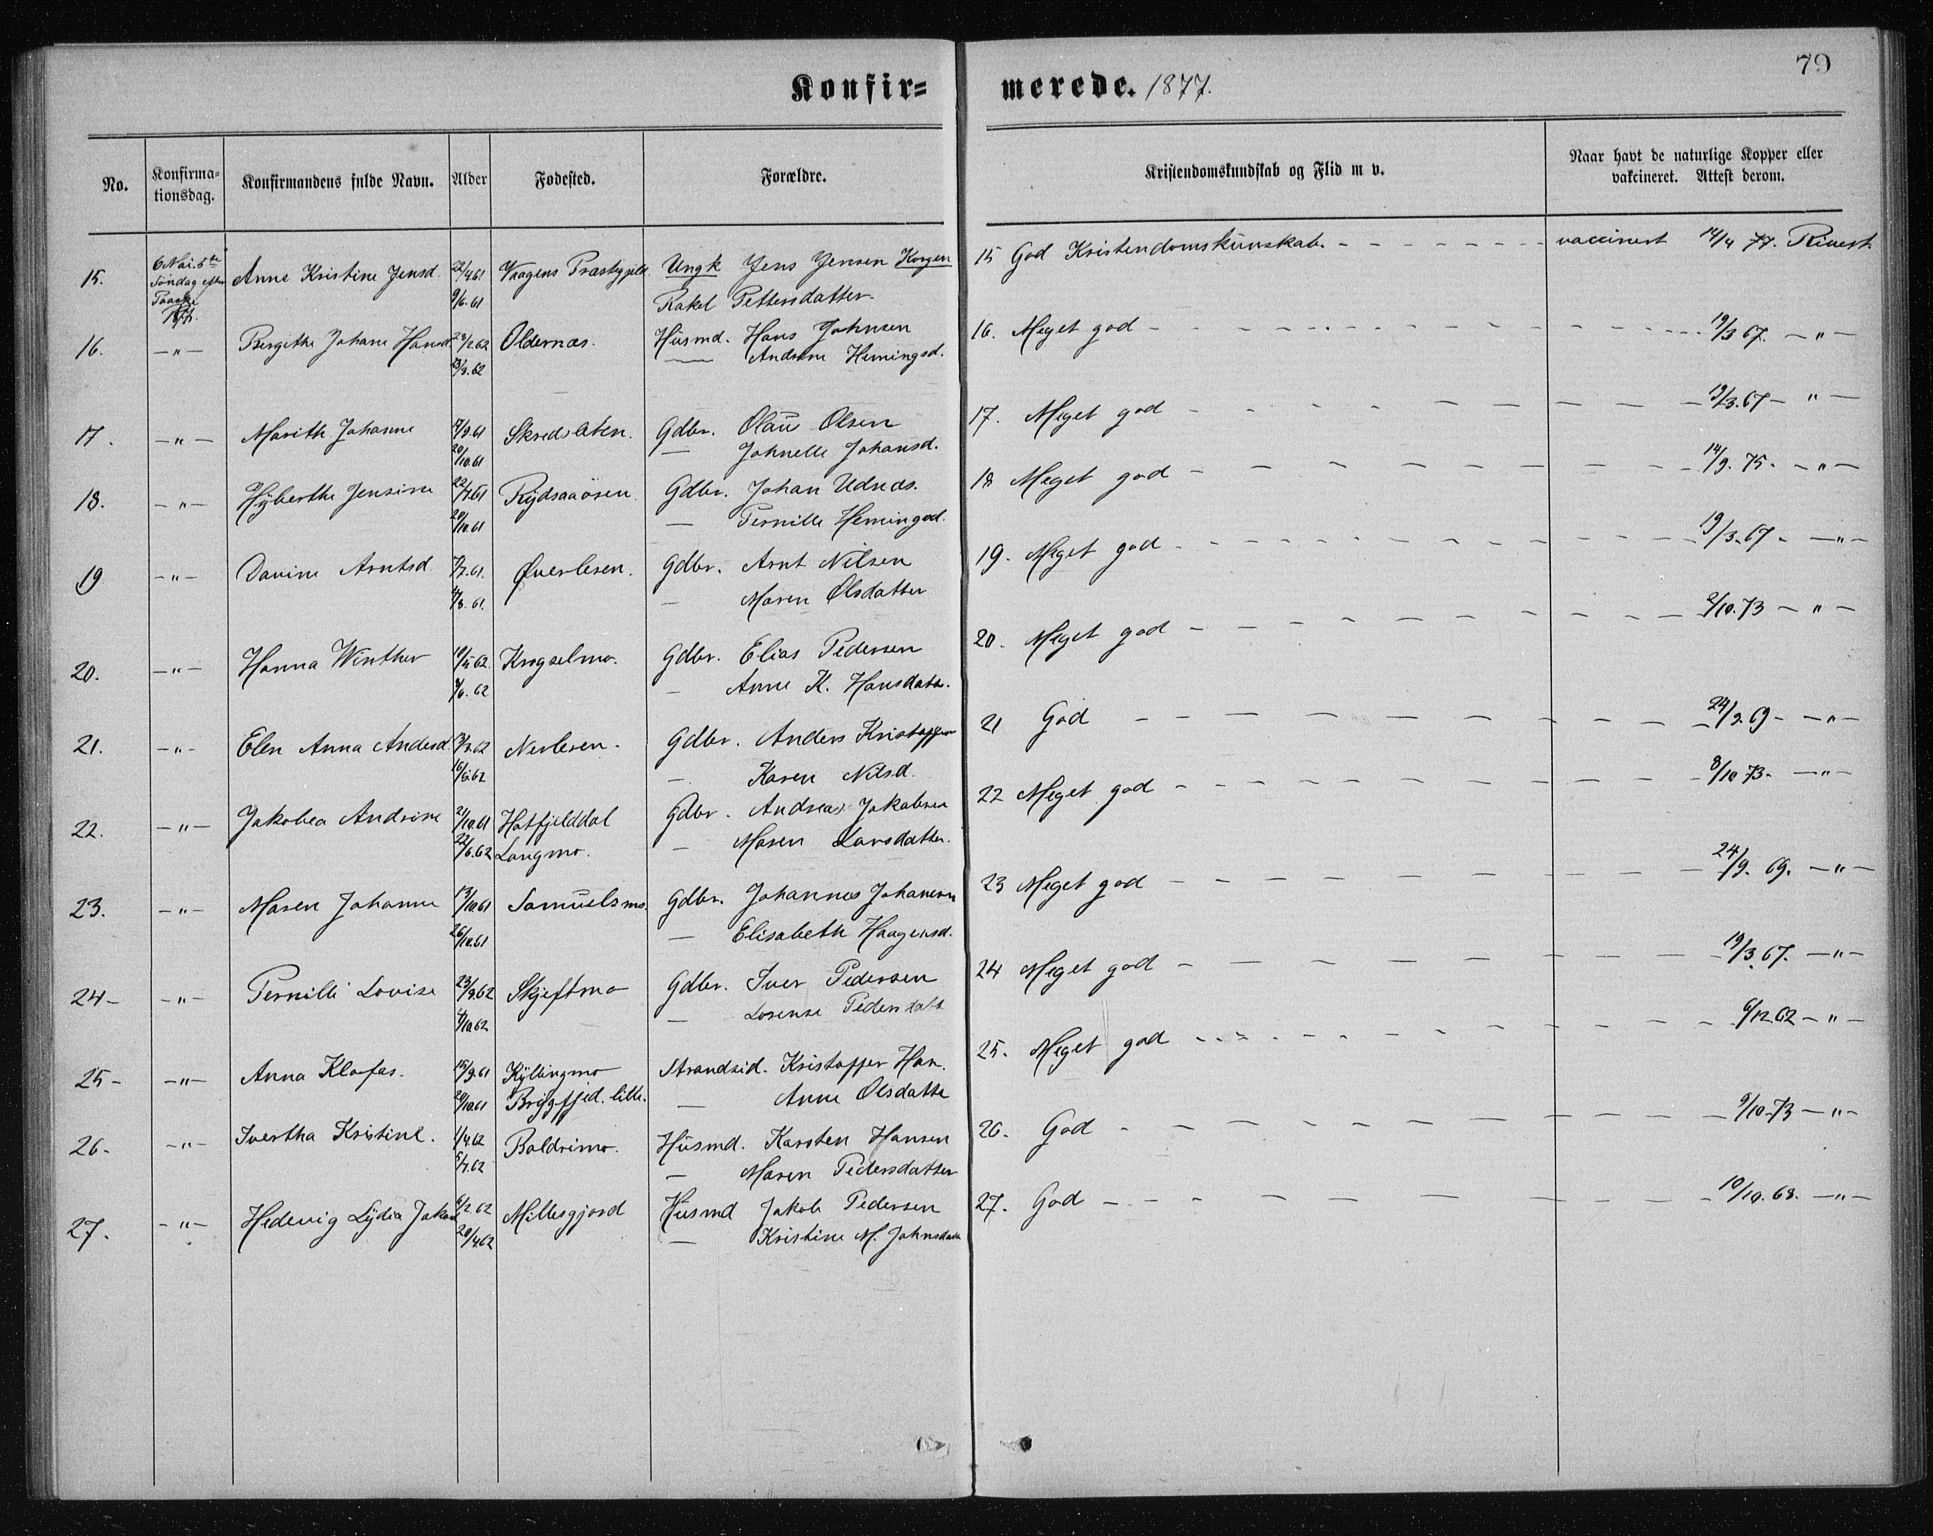 79
Konfir= merede. 1877.
No. Konfirma-tionsdag. Konfirmandens fulde Navn. Alder Fødested. Forældre. Kristendomskundskab og Flid m v. Naar havt de naturlige Kopper eller vakcineret. Attest derom.
15. 6 Mai. 5te Søndag efter Paaske Anne Kristine Jensd. 22/4 61 Vaagens Præstegjeld. Ungk Jens Jensen Korgen 15 God Kristendomskunskab. vaccinert 14/4 77. Rivert
9/6.61 Rakel Pettersdatter.
16. —"— Bergithe Johane Hansd 2.62 Oldernæs. Husmd. Hans Johnsen 16. Meget god 19/3 67. —"—
3.62 — Andrine Hemingsd.
17. —"— Marith Johanne 17/9.61 Skredsleten. Gdbr. Olau Olsen 17. Meget god 19/3.67 —"—
20/10.61 — Johnelle Johansd.
18. —"— Hyberthe Jensine 22/7.61 Rydsaaösen. Gdbr. Johan Udnæs. 18 Meget god 14/9. 75. —"—
20/10.61 — Pernille Hemingsd.
19 —"— Davine Arntsd 7/7.61. Øverlesen. Gdbr. Arnt Nilsen 19. Meget god 19/3.67. —"—
4/8.61. — Maren Olsdatter
20. —"— Hanna Winther 10/5.62. Krogselmo. Gdbr. Elias Pedersen 20. Meget god 2/10.73 —"—
9/6.62 — Anne K. Hansdatr.
21. —"— Elen Anna Andersd 3.62 Nerlesen. Gdbr. Anders Kristoffersen 21 God 24/9.69 —"—
16/6.62 — Karen Nilsd.
22. —"— Jakobea Andrine 21/10.61 Hatfjelddal Gdbr. Andreas Jakobsen 22 Meget god 8/10 73. —"—
22/6.62 Langmo. — Maren Larsdatter.
23. —"— Maren Johanne 13/10.61 Samuelsmo. Gdbr. Johannes Johansen 23 Meget god 24/9. 69. —"—
26/10.61 — Elisabeth Haagensd.
24 —"— Pernille Lovise 23/9.62 Skjeftmo Gdbr. Iver Pedersen 24 Meget god 19/3.67. —"—
9/10.62 — Lorense Pedersdatt
25 —"— Anna Klofas. 15/9.61 Kyllingmo Strandsid. Kristoffer Han. 25. Meget god 6/12 62 —"—
20/10.61 Bryggfjed. lille. — Anne Olsdatte
26. —"— Ivertha Kristine. 1/4.62 Baldrimo. Husmd. Karsten Hansen 26. God 9/10.73 —"—
5/7.62 — Maren Pedersdatter
27. —"— Hedevig Lydia Jakobd 6/2 62 Millesgjord Husmd Jakob Pedersen 27. God 10/10.68. —"—
20/4.62 — Kristine M. Johnsdatr